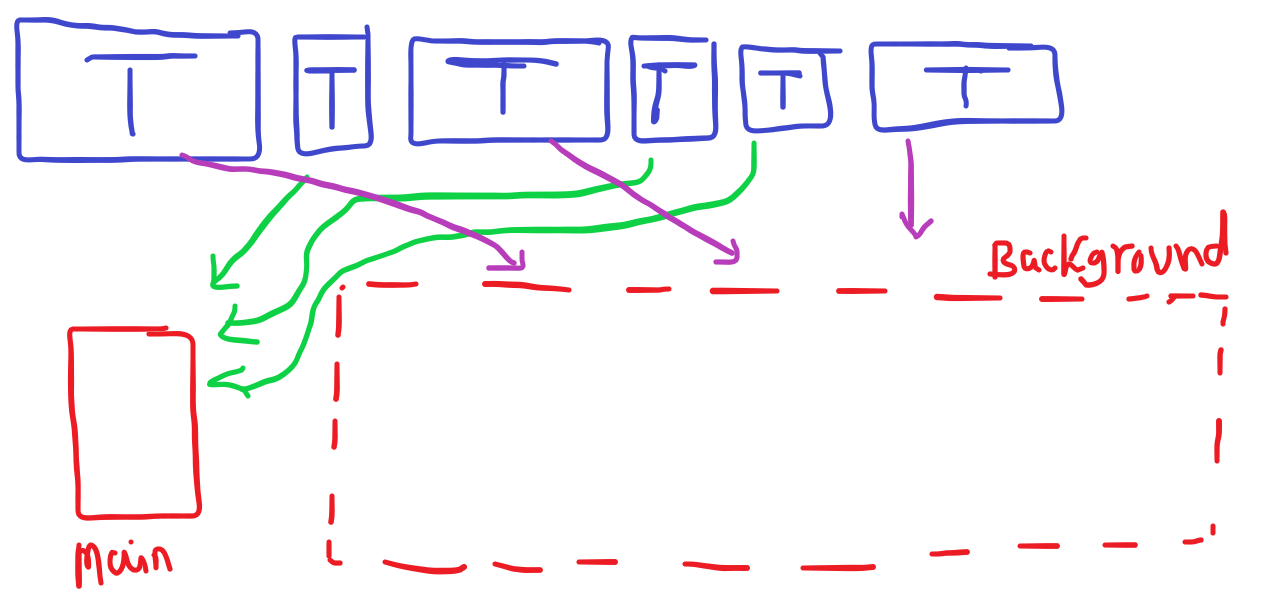 T T T T T T
Background
Main